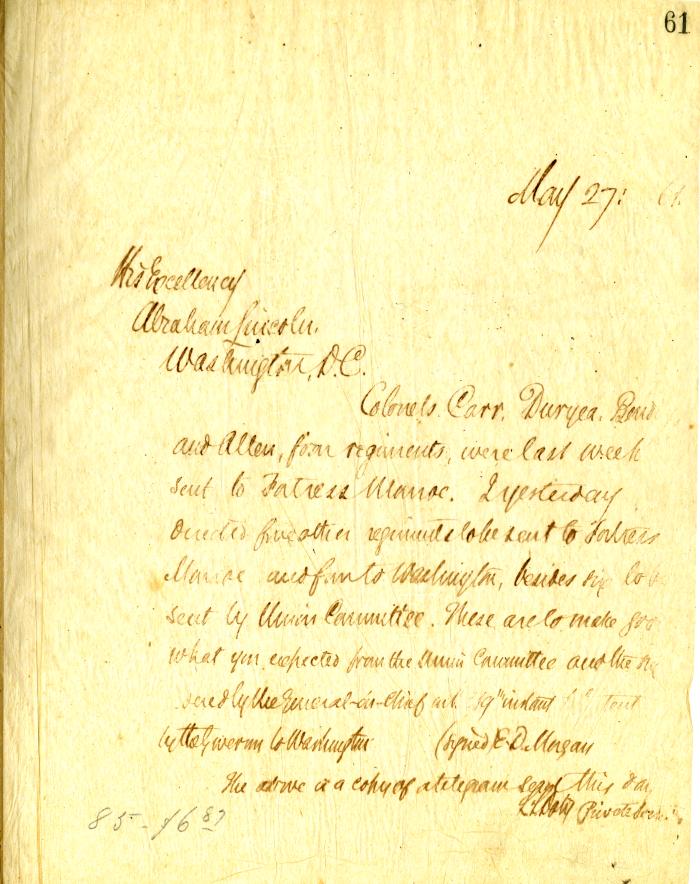 61
May 27: 61.
His Excellency
Abraham Lincoln.
Washington, D.C.
Colonels. Carr. Duryea.
and Allen, four regiments, were last week
sent to Fortress Monroe. I yesterday
directed five other regiments to be sent to Fortress
Monroe and four to Washington, besides six to be
sent by Union Committee. These are to make goo
what you expected from the Union Committee and the
by the General-in-Chief 19" instant
by the Governm to Washington (signed) E. D. Morgan
The above is a copy of a telegram sent this day
L. L. Doty Private Secr.
85-1687